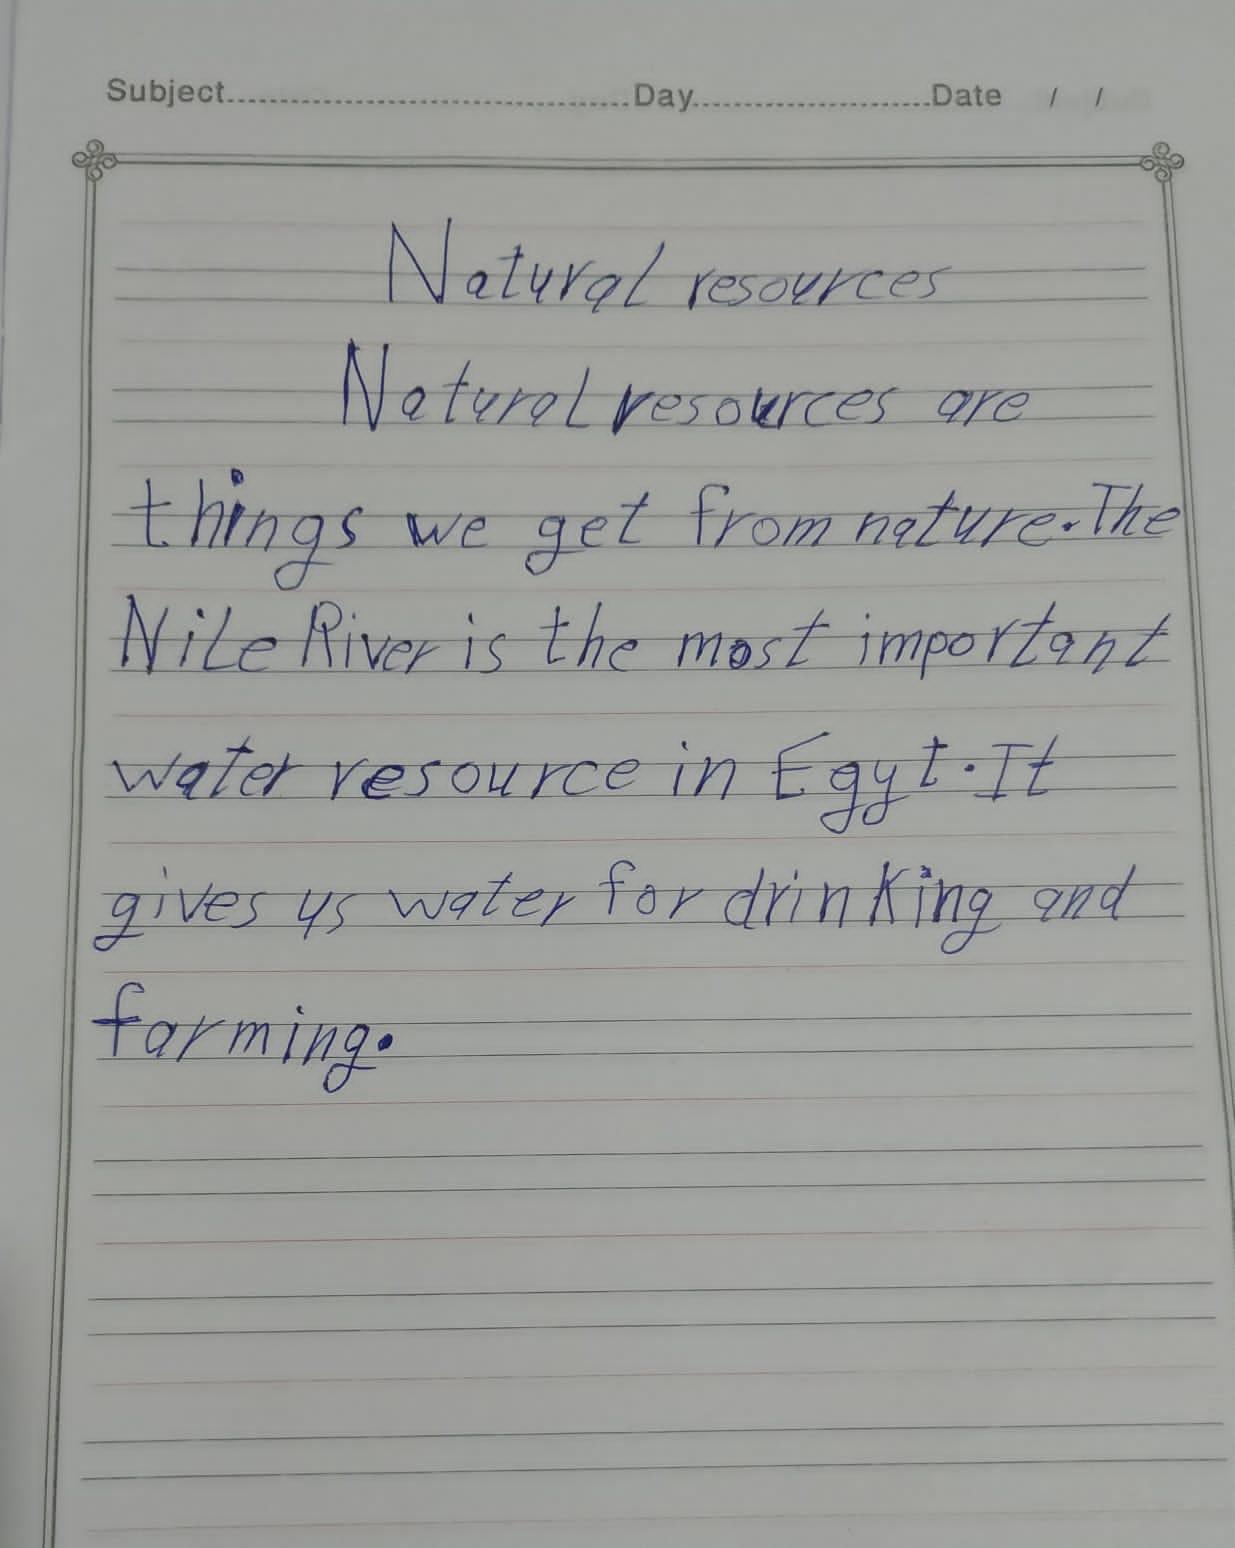 Subject.......................................Day.......................Date / /
Natural resources
Natural resources are
things we get from nature. The
Nile River is the most important
water resource in Egyt. It
gives us water for drinking and
farming.